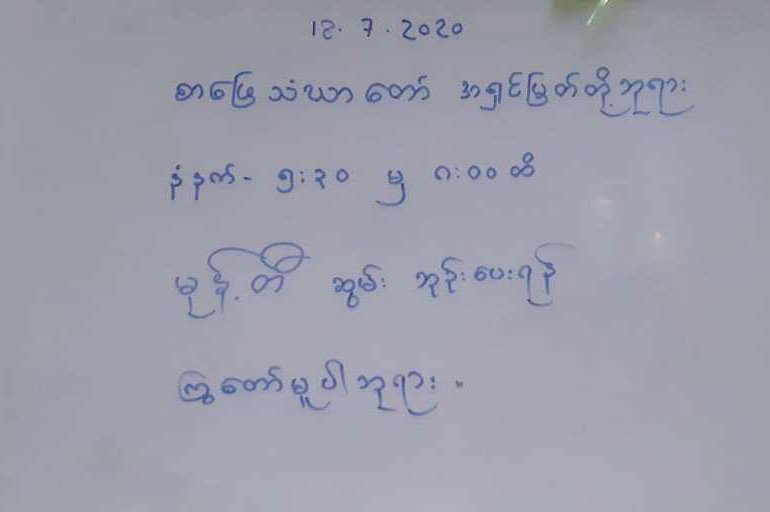 18.7.2020
စာဖြေသံဃာတော် အရှင်မြတ်တို့ဘုရား
နံနက်- ၅:၃၀ မှ ၈:၀၀ ထိ
မုန့်တီ ဆွမ်း ဘုဉ်းပေးရန်
ကြွတော်မူပါဘုရား။